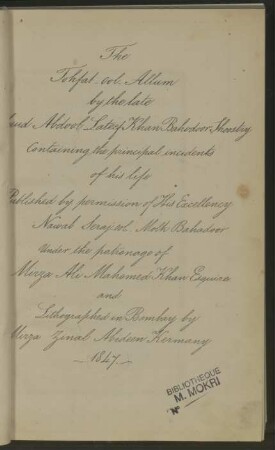 The
Tohfat ool Allum
by the late
Abdool Lateef Khan Bahodoor Shoostry
Containing the principal incidents
of his life
Published by permission of His Excellency
Nawab Seraj ool Molk Bahadoor
Under the patronage of
Meerza Ali Mahomed Khan Esquire
and
Lithographed in Bombay by
Meerza Zinal Abideen Kermany
1847
BIBLIOTHEQUE
M. MOKRI
N°